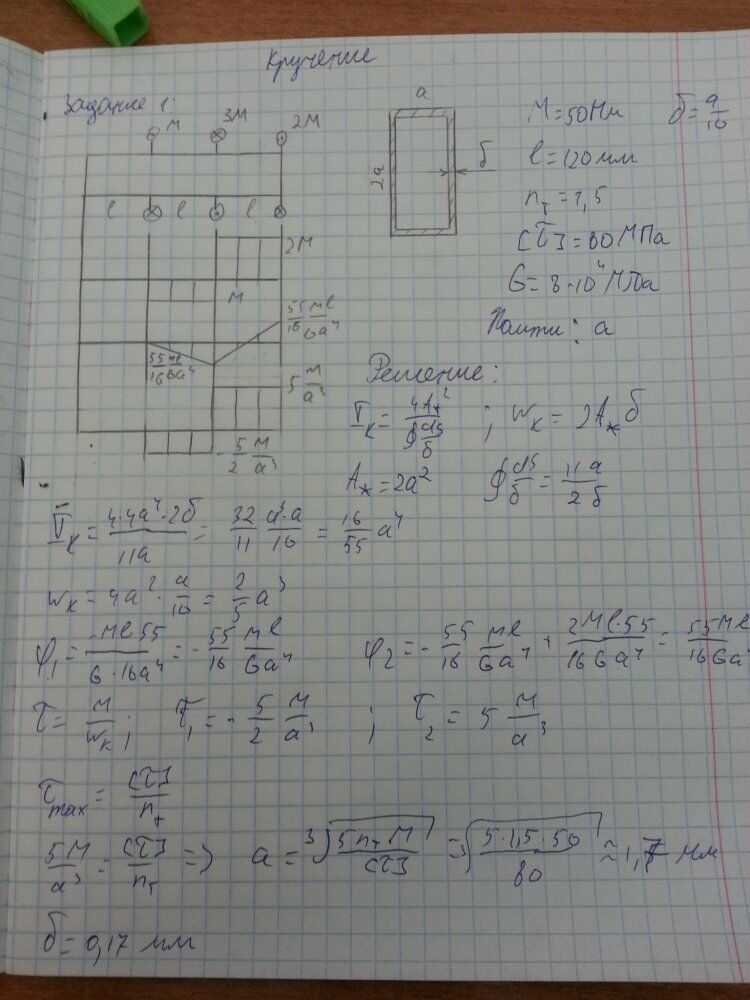 Кручение
Задание 1:
M 3M 2M
l l l
2M
M
55/16 Ml/Ga⁴
55/16 Ml/Ga⁴
5 M/a³
-5/2 M/a³
a
2a
δ
M = 50 Нм δ = a/10
l = 120 мм
nт = 1,5
[τ] = 80 МПа
G = 8·10⁴ МПа
Найти: a
Решение:
Iк = 4A*²/∮ds/δ ; Wк = 2A*δ
A* = 2a² ∮ds/δ = 11a/2δ
Iк = 4·4a⁴·2δ/11a = 32/11 a³·a/10 = 16/55 a⁴
Wк = 4a²·a/10 = 2/5 a³
φ₁ = -Ml·55/G·16a⁴ = -55/16 Ml/Ga⁴ φ₂ = -55/16 Ml/Ga⁴ + 2Ml·55/16Ga⁴ = 55Ml/16Ga⁴
τ = M/Wк ; τ₁ = -5/2 M/a³ ; τ₂ = 5 M/a³
τmax = [τ]/nт
5M/a³ = [τ]/nт => a = ³√5nтM/[τ] = ³√5·1,5·50/80 ≈ 1,7 мм
δ = 0,17 мм